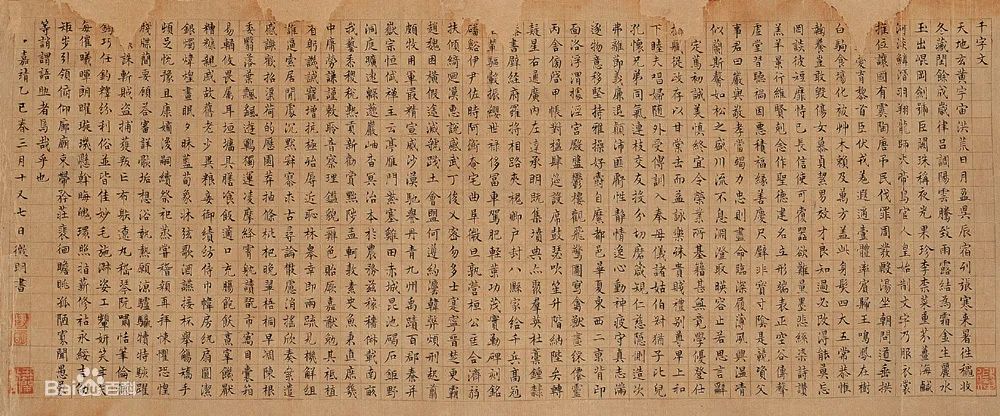 千字文
天地玄黃宇宙洪荒日月盈昃辰宿列張寒來暑往秋收
冬藏閏餘成歲律呂調陽雲騰致雨露結為霜金生麗水
玉出崑岡劍號巨闕珠稱夜光果珍李柰菜重芥薑海鹹
河淡鱗潛羽翔龍師火帝鳥官人皇始制文字乃服衣裳
推位讓國有虞陶唐弔民伐罪周發殷湯坐朝問道垂拱
愛育黎首臣伏戎羌遐邇壹體率賓歸王鳴鳳在樹
白駒食場化被艸木賴及萬方蓋此身髮四大五常恭惟
鞠養豈敢毀傷女慕貞絜男效才良知過必改得能莫忘
罔談彼短靡恃己長信使可覆器欲難量墨悲絲染詩讚
羔羊景行維賢剋念作聖德建名立形端表正空谷傳聲
虛堂習聽禍因惡積福緣善慶尺璧非寶寸陰是競資父
事君曰嚴與敬孝當竭力忠則盡命臨深履薄夙興溫凊
似蘭斯馨如松之盛川流不息淵澄取映容止若思言辭
定篤初誠美慎終宜令榮業所基籍甚無竟學優登仕
職從政存以甘棠去而益詠樂殊貴賤禮別尊卑上和
下睦夫唱婦隨外受傅訓入奉母儀諸姑伯叔猶子比兒
孔懷兄弟同氣連枝交友投分切磨箴規仁慈隱惻造次
弗離節義廉退顛沛匪虧性靜情逸心動神疲守真志滿
逐物意移堅持雅操好爵自縻都邑華夏東西二京背邙
面洛浮渭據涇宮殿盤鬱樓觀飛驚圖寫禽獸畫綵僊靈
丙舍傍啟甲帳對楹肆筵設席鼓瑟吹笙升階納陛弁轉
疑星右通廣內左達承明既集墳典亦聚群英杜稾鍾隸
書壁經府羅將相路夾槐卿戶封八縣家給千兵高冠
輦驅轂振纓世祿侈富車駕肥輕策功茂實勒碑刻銘
磻谿伊尹佐時阿衡奄宅曲阜微旦孰營桓公匡合濟弱
扶傾綺迴漢惠說感武丁俊乂密勿多士寔寧晉楚更霸
趙魏困橫假途滅虢踐土會盟何遵約法韓弊煩刑起翦
頗牧用軍最精宣威沙漠馳譽丹青九州禹蹟百郡秦并
嶽宗恒岱禪主云亭雁門紫塞雞田赤城昆池碣石鉅野
洞庭曠遠緜邈巖岫杳冥治本於農務茲稼穡俶載南畝
我藝黍稷稅熟貢新勸賞黜陟孟軻敦素史魚秉直庶幾
中庸勞謙謹敕聆音察理鑑貌辨色貽厥嘉猷勉其祗植
省躬譏誡寵增抗極殆辱近恥林皋幸即兩疏見機解組
誰逼索居閒處沉默寂寥求古尋論散慮逍遙欣奏累遣
慼謝歡招渠荷的歷園莽抽條枇杷晚翠梧桐早凋陳根
委翳落葉飄颻遊鵾獨運凌摩絳霄耽讀翫市寓目囊箱
易輶攸畏屬耳垣墻具膳餐飯適口充腸飽飫烹宰飢厭
糟糠親戚故舊老少異糧妾御績紡侍巾帷房紈扇圓潔
銀燭煒煌晝眠夕寐藍筍象床弦歌酒讌接杯舉觴矯手
頓足悅豫且康嫡後嗣續祭祀蒸嘗稽顙再拜悚懼恐惶
牋牒簡要顧答審詳骸垢想浴執熱願涼驢騾犢特駭躍
誅斬賊盜捕獲叛亡布射遼丸嵇琴阮嘯恬筆倫
鈞巧任釣釋紛利俗並皆佳妙毛施淑姿工顰妍笑年矢
每催曦暉朗曜璇璣懸斡晦魄環照指薪修祜永綏吉劭
矩步引領俯仰廊廟束帶矜莊徘徊瞻眺孤陋寡聞愚蒙
等誚謂語助者焉哉乎也
嘉靖乙巳春三月十又七日徵明書
Baidu百科